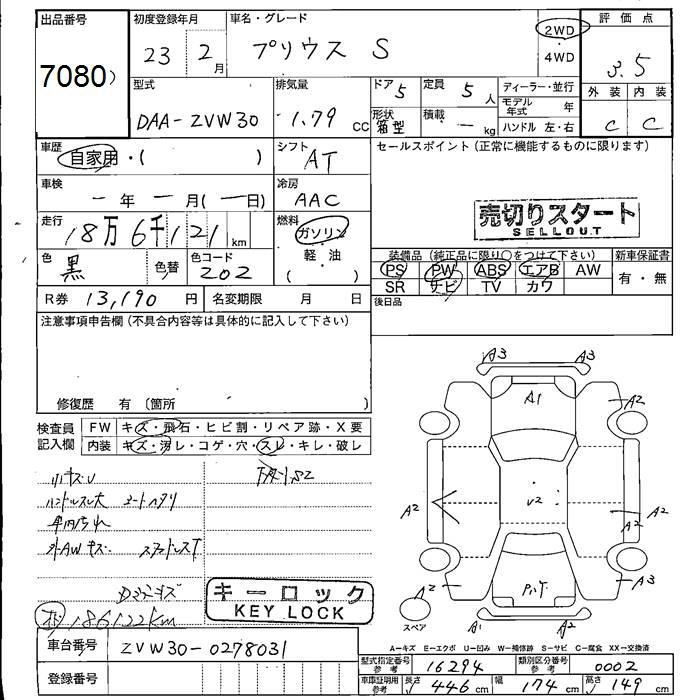 出品番号 初度登録年月 車名・グレード 評価点
7080) 23 2月 プリウス S 2WD ・4WD 3.5
外装 内装
C C
型式 排気量 ドア 定員 ディーラー・並行
DAA-ZVW30 1.79 CC 5 5人 モデル年式 年
形状 箱型 積載 - kg ハンドル 左・右
車歴 シフト セールスポイント (正常に機能するものに限ります)
自家用・( ) AT
車検 冷房
一年 一月(一日) AAC
売切りスタート
SELLOUT
走行 燃料
18万6千121km ガソリン・軽油 ( )
装備品 (純正品に限り○をつけて下さい) 新車保証書
色 黒 色替 色コード 202
PS PW ABS エアB AW 有・無
SR ナビ TV カワ
R券 13,190円 名変期限 月 日
後日品
注意事項申告欄 (不具合内容等は具体的に記入して下さい)
修復歴 有 〔箇所 〕
A3 A3
A1
A2
検査員記入欄 FW キズ・飛石・ヒビ割・リペア跡・X要
内装 キズ・汚レ・コゲ・穴・スレ・キレ・破レ
小キズU
ハンドルスレ大 シートヘタリ
車内汚れ
外AWキズ スタッドレスT
A2 V2 A2 A2
A2 A3
スペア A1 A2
キーロック
KEY LOCK
186122km
A-キズ E-エクボ U-凹み W-補修跡 S-サビ C-腐食 XX-交換済
車台番号 ZVW30-0278031
型式指定番号 参考 16294 類別区分番号 参考 0002
登録番号
車庫証明用 参考 長さ 446cm 幅 174cm 高さ 149cm